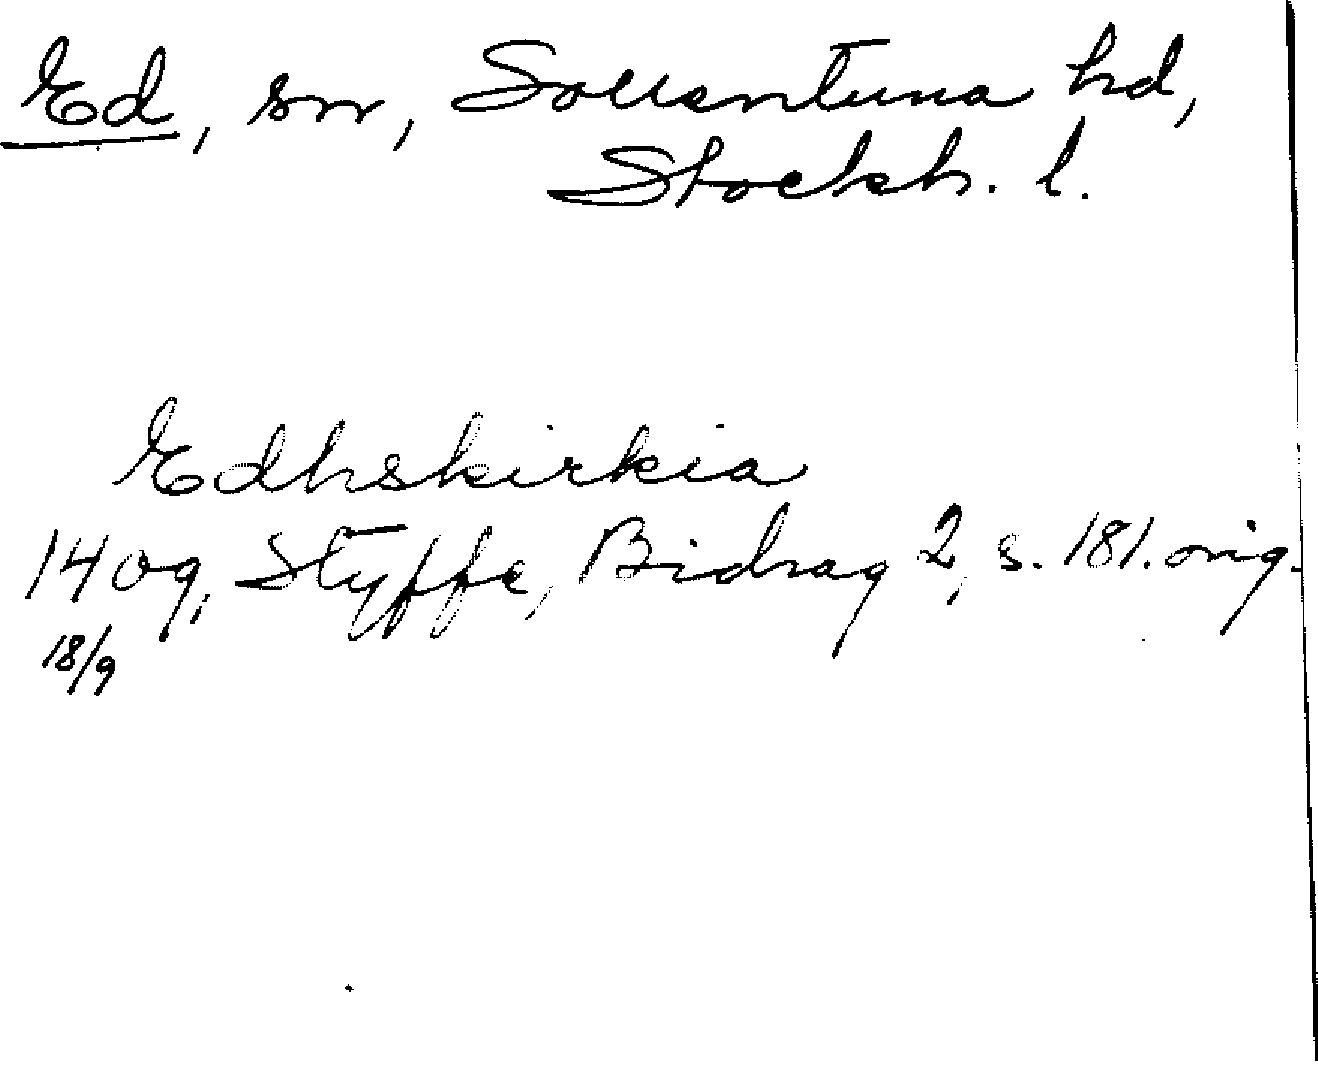 Ed, sn, Sollentuna hd,
Stockh. l.
Edhskirkia
1409, Styffe, Bidrag 2, s. 181. orig.
18/9